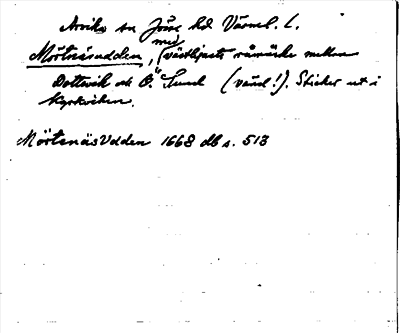 Arvika sn Jösse hd Värml. l.
Mörtnäsudden, med västligaste råmärke mellan
Dottevik och Ö. Sund (vänd!). Sticker ut i
Kyrkviken.
Mörtenäsudden 1668 db s. 513